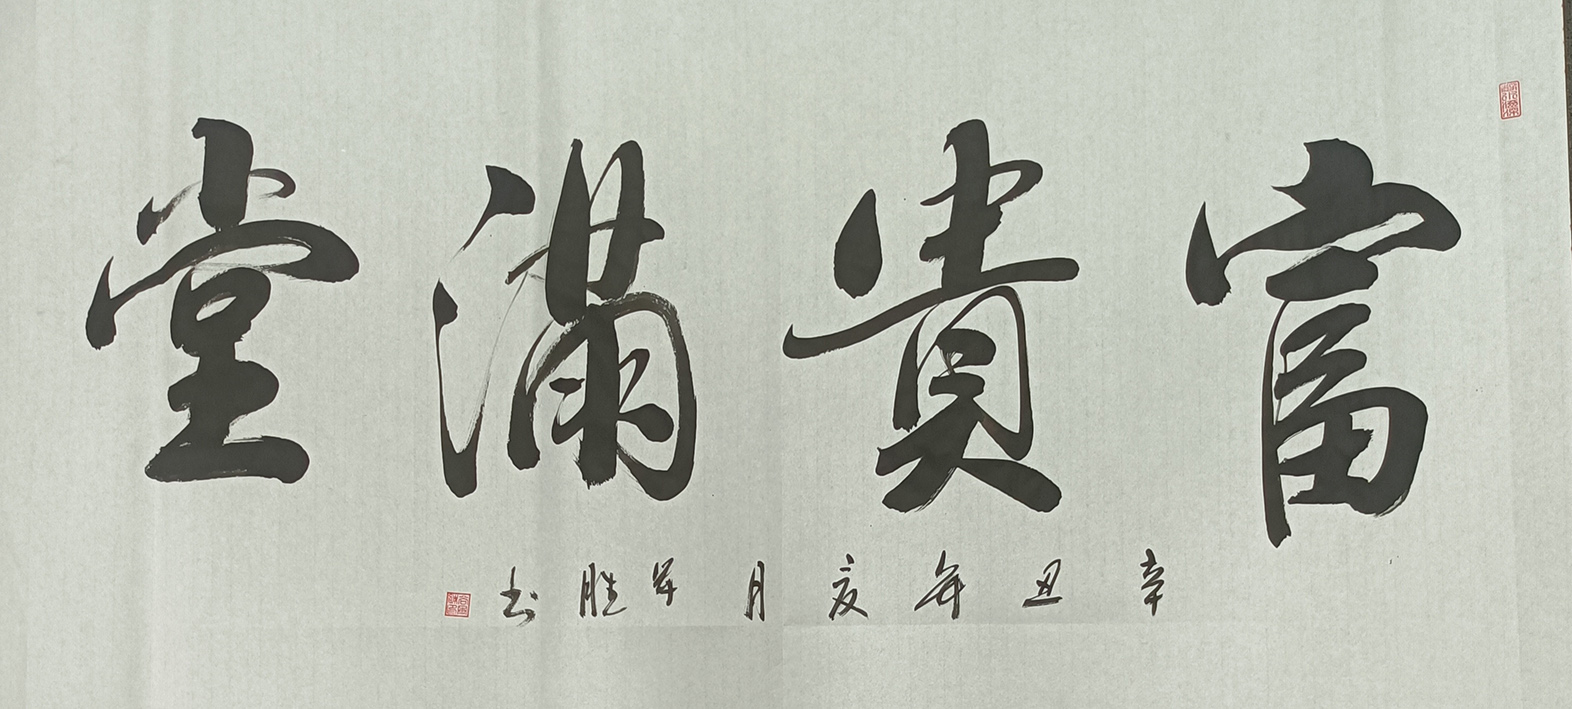 富貴滿堂
辛丑年亥月 胜书